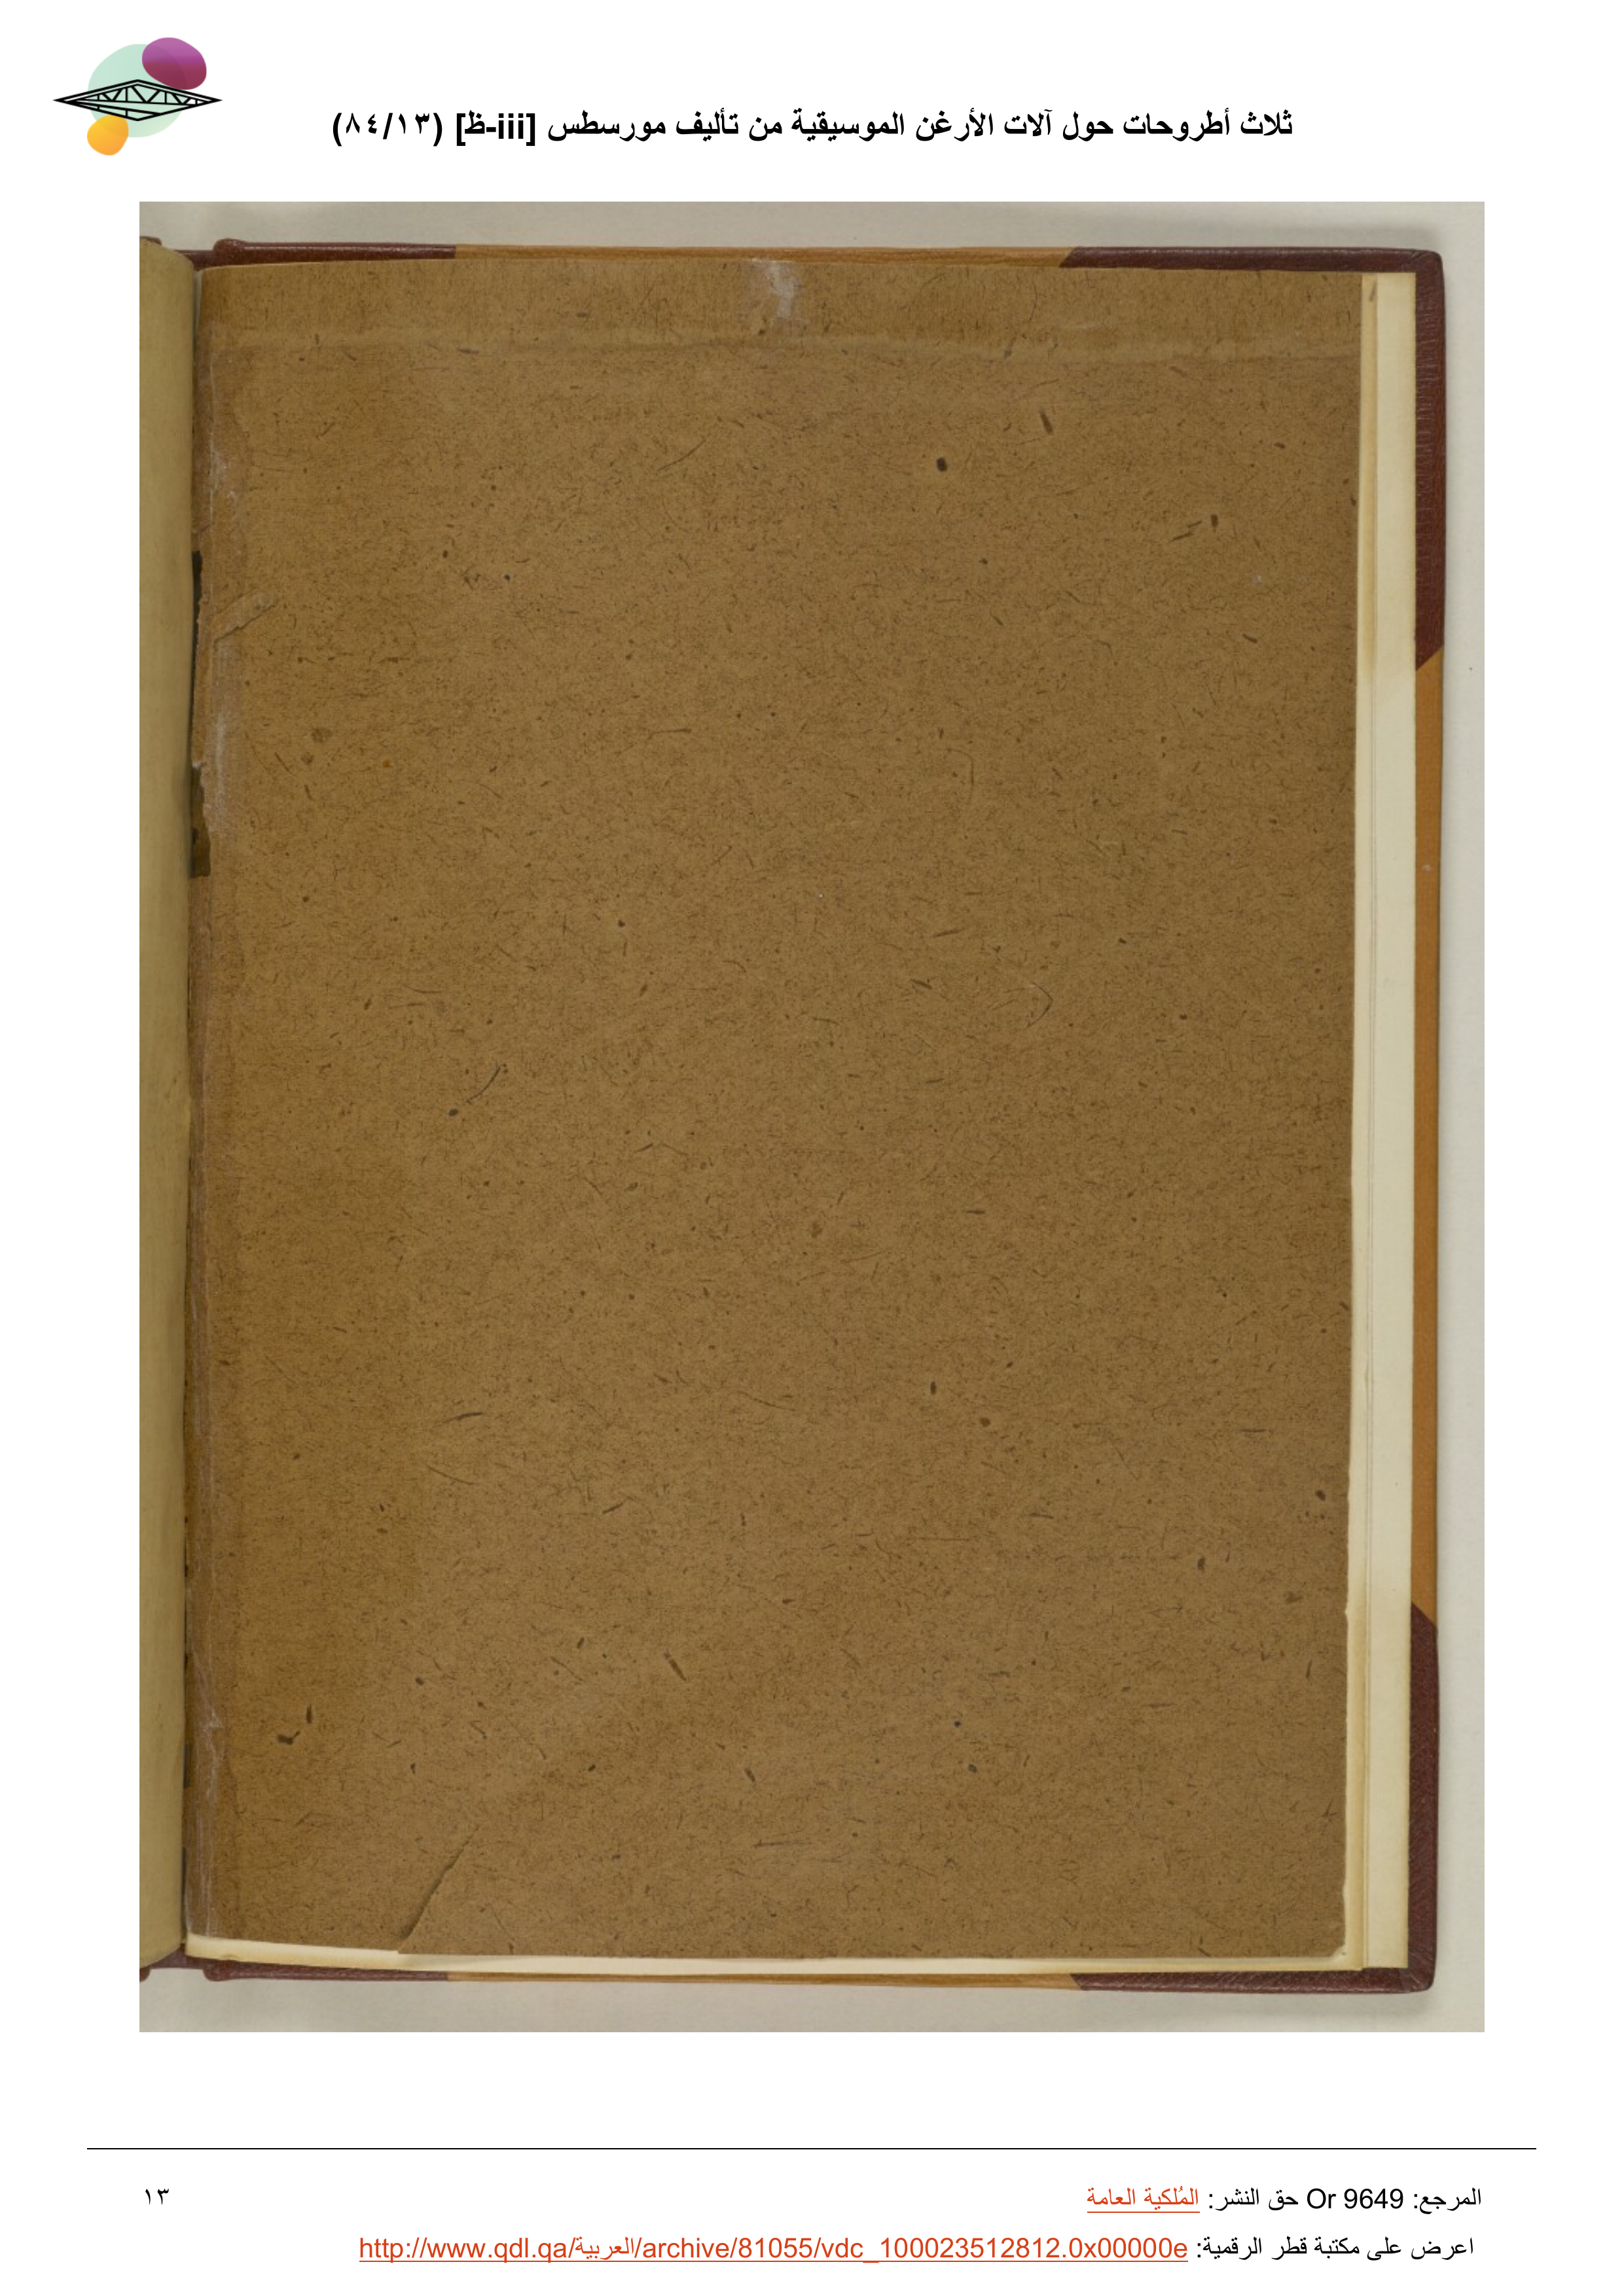 ثلاث أطروحات حول آلات الأرغن الموسيقية من تأليف مورسطس [iii-ظ] (١٣/٨٤)
المرجع: Or 9649 حق النشر: المُلكية العامة
١٣
اعرض على مكتبة قطر الرقمية: http://www.qdl.qa/العربية/archive/81055/vdc_100023512812.0x00000e